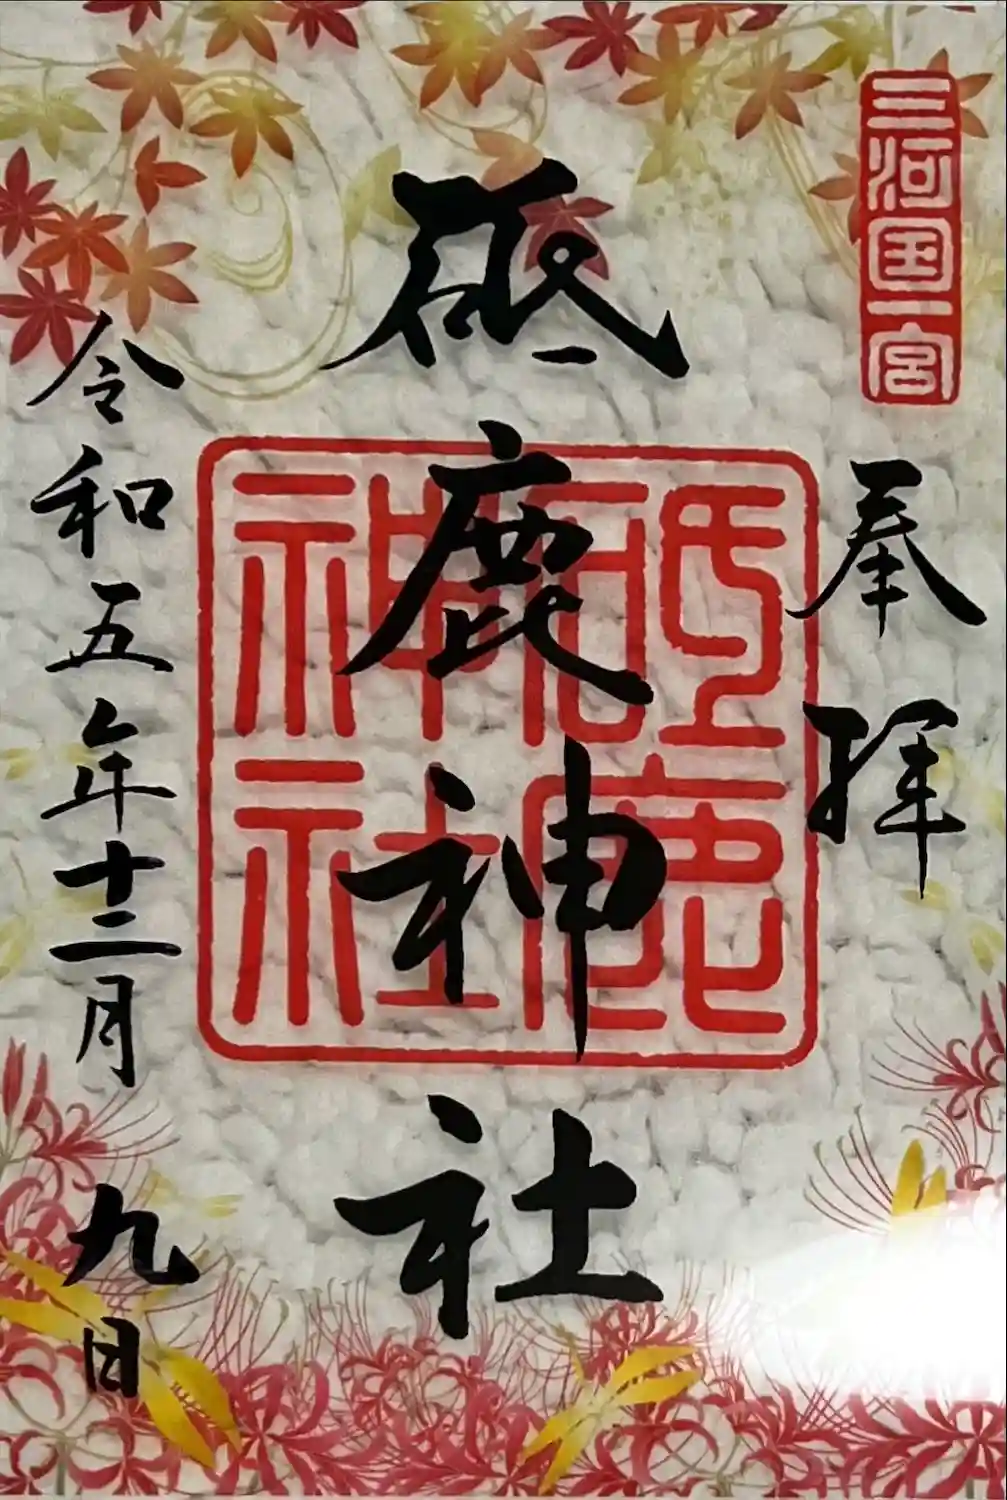 三河国一宮
奉拝
砥鹿神社
砥鹿神社
令和五年十二月九日